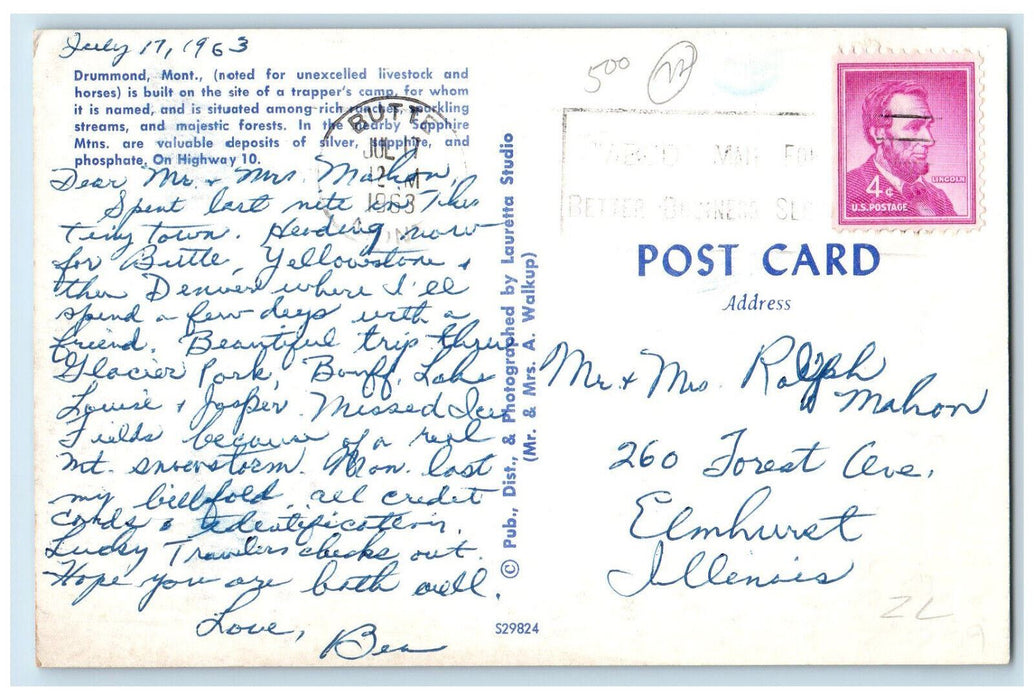 July 17, 1963
Drummond, Mont., (noted for unexcelled livestock and
horses) is built on the site of a trapper's camp, for whom
it is named, and is situated among rich ranches, sparkling
streams, and majestic forests. In the nearby Sapphire
Mtns. are valuable deposits of silver, sapphire, and
phosphate. On Highway 10.
Dear Mr. + Mrs. Mahon,
Spent last nite in this
tiny town. Heading now
for Butte, Yellowstone +
then Denver where I'll
spend a few days with a
friend. Beautiful trip thru
Glacier Park, Banff, Lake
Louise + Jasper. Missed Ice
Fields because of a real
mt. snowstorm. Mon. lost
my billfold, all credit
cards & identification.
Lucky Travelers checks out.
Hope you are both well.
Love,
Bea
BUTTE
JUL 17
M
1963
© Pub., Dist., & Photographed by Lauretta Studio
(Mr. & Mrs. A. Walkup)
S29824
500
MAIL FOR
BETTER BUSINESS
LINCOLN
4¢
U.S. POSTAGE
POST CARD
Address
Mr. + Mrs. Ralph
Mahon
260 Forest Ave.
Elmhurst
Illinois
ZL